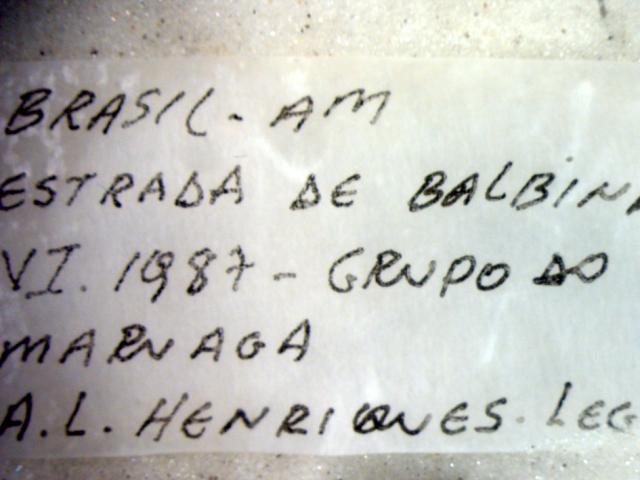 BRASIL - AM
ESTRADA DE BALBINA
VI. 1987 - GRUPO DO
MARUAGA
A. L. HENRIQUES. LEG